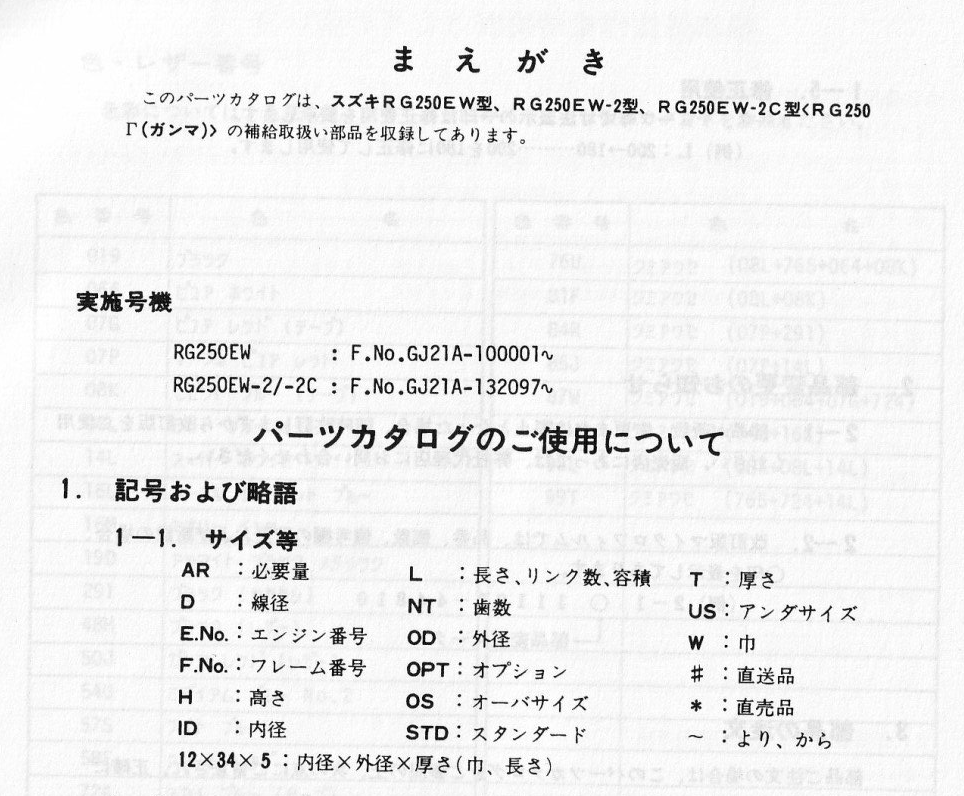 まえがき
このパーツカタログは、スズキRG250EW型、RG250EW-2型、RG250EW-2C型<RG250
Γ(ガンマ)> の補給取扱い部品を収録してあります。
実施号機
RG250EW : F.No.GJ21A-100001~
RG250EW-2/-2C : F.No.GJ21A-132097~
パーツカタログのご使用について
1. 記号および略語
1―1. サイズ等
AR :必要量 L :長さ、リンク数、容積 T :厚さ
D :線径 NT :歯数 US:アンダサイズ
E.No.:エンジン番号 OD :外径 W :巾
F.No.:フレーム番号 OPT:オプション # :直送品
H :高さ OS :オーバサイズ * :直売品
ID :内径 STD:スタンダード ~ :より、から
12×34×5:内径×外径×厚さ(巾、長さ)